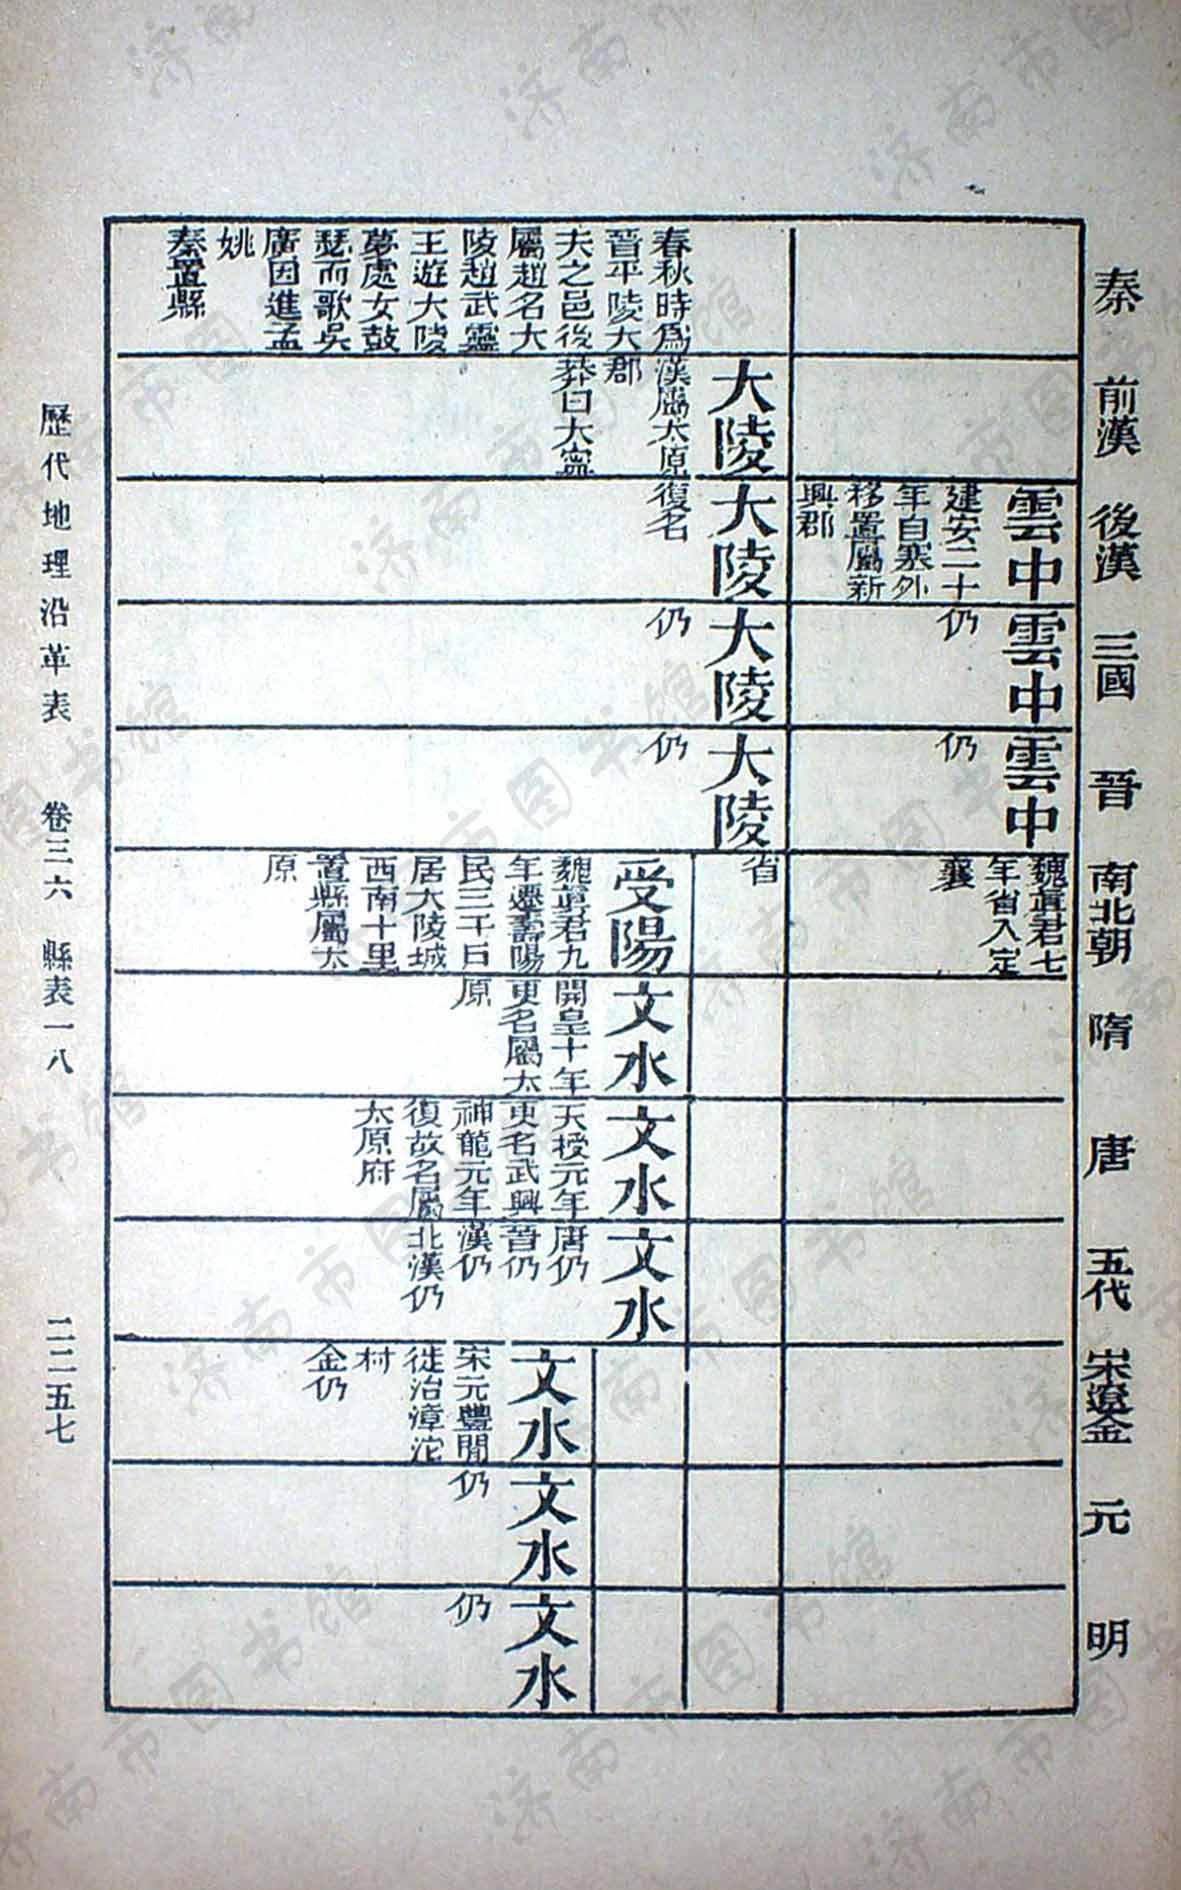 秦
前漢
後漢
三國
晉
南北朝
隋
唐
五代
宋遼金
元
明
雲中
建安二十
年自塞外
移置屬新
興郡
雲中
仍
雲中
仍
魏眞君七
年省入定
襄
春秋時爲
晉平陵大
夫之邑後
屬趙名大
陵趙武靈
王遊大陵
夢處女鼓
瑟而歌吳
廣因進孟
姚
秦置縣
大陵
漢屬太原
郡
莽曰大寧
大陵
復名
大陵
仍
大陵
仍
省
受陽
魏眞君九
年遷壽陽
民三千口
居大陵城
西南十里
置縣屬太
原
文水
開皇十年
更名屬太
原
文水
天授元年
更名武興
神龍元年
復故名屬
太原府
文水
唐仍
晉仍
漢仍
北漢仍
文水
宋元豐間
徙治漳沱
村
金仍
文水
仍
文水
仍
歷代地理沿革表 卷三六 縣表一八 二二五七
济南市图书馆